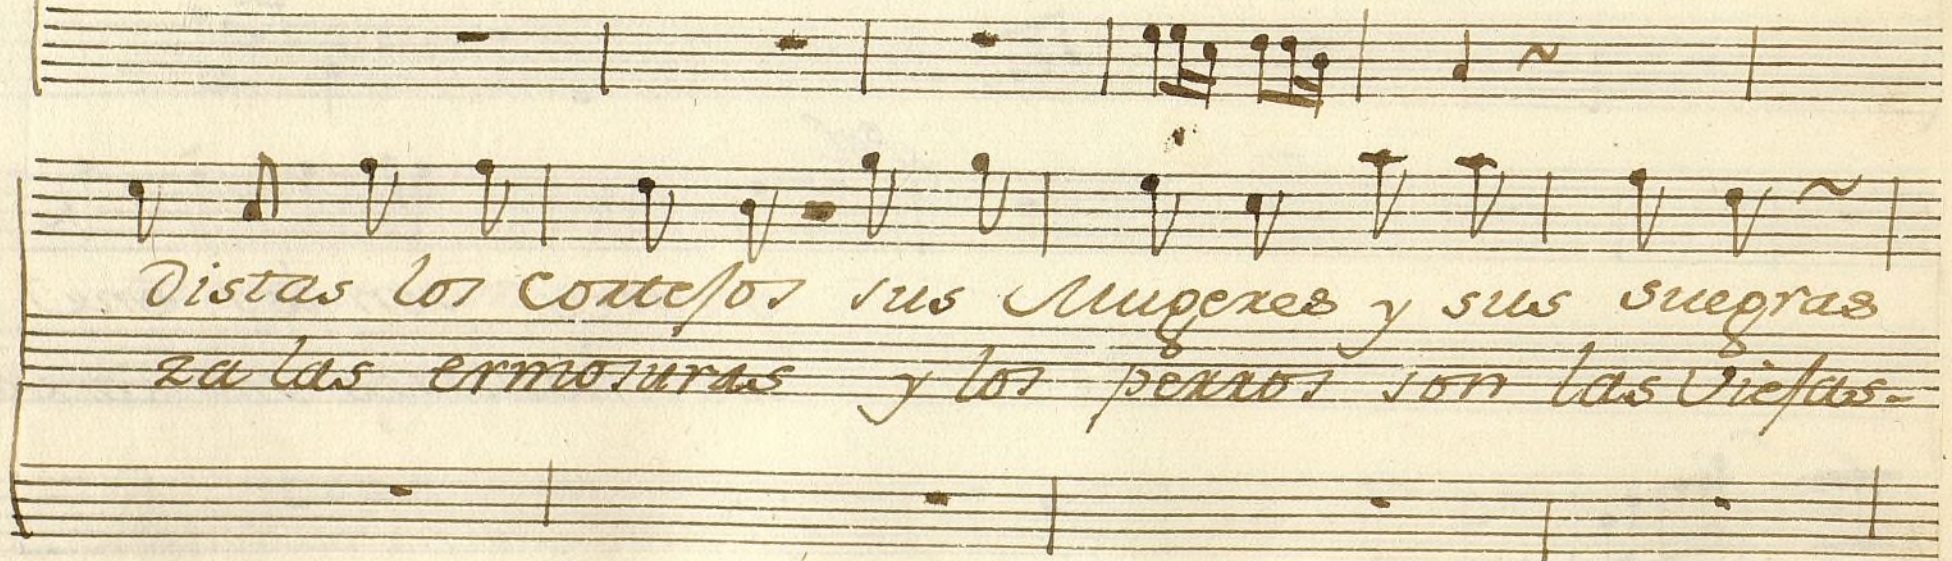 Distas los Cortejos sus Mugeres y sus suegras
za las ermosuras y los perros son las Viejas-